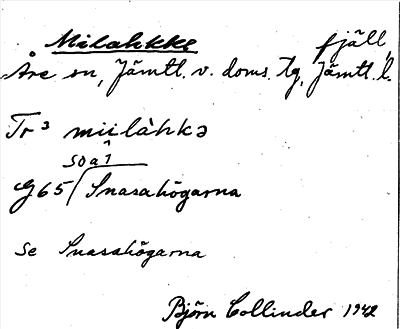 Milahkke fjäll,
Åre sn, Jämtl. v. doms. tg, Jämtl. l.
Tr³ miilàhkə
50a1
G65 Snasahögarna
se Snasahögarna
Björn Collinder 1942